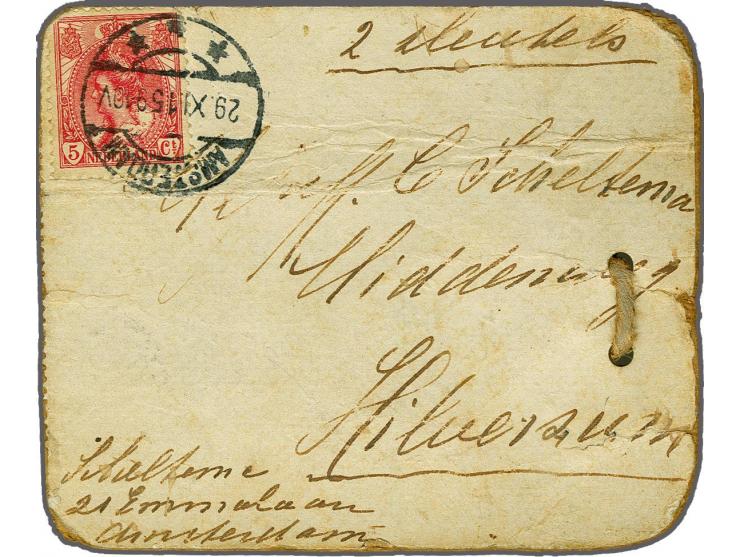 2 sleutels
5 NEDERLAND Ct
29.XI.15 9-10V
AMSTERDAM
C Scheltema
Middenweg
Hilversum
Scheltema
21 Emmalaan
Amsterdam